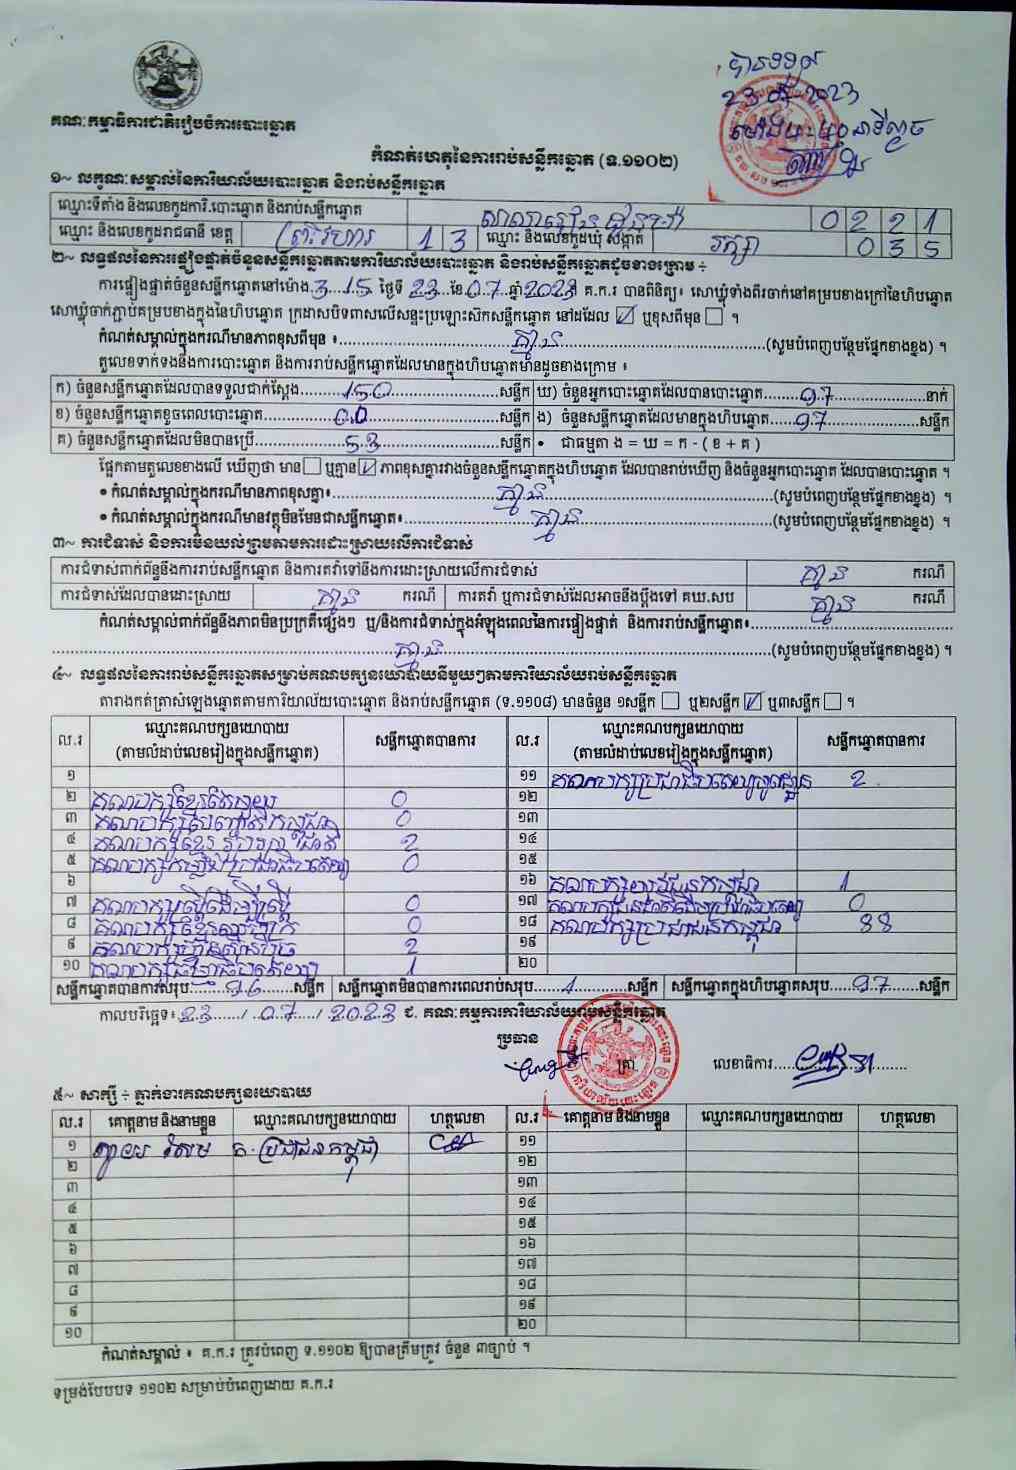 បានទទួល
23 07 2023
គណៈកម្មាធិការជាតិរៀបចំការបោះឆ្នោត
កំណត់ហេតុនៃការរាប់សន្លឹកឆ្នោត (ទ.១១០២)
១~ លក្ខណៈសម្គាល់នៃការិយាល័យបោះឆ្នោត និងរាប់សន្លឹកឆ្នោត
ឈ្មោះទីតាំង និងលេខកូដការិ.បោះឆ្នោត និងរាប់សន្លឹកឆ្នោត សាលារៀន ដូនម៉ា 0 2 2 1
ឈ្មោះ និងលេខកូដរាជធានី ខេត្ត ព្រះវិហារ 1 3 ឈ្មោះ និងលេខកូដឃុំ សង្កាត់ រក្សា 0 3 5
២~ លទ្ធផលនៃការផ្ទៀងផ្ទាត់ចំនួនសន្លឹកឆ្នោតតាមការិយាល័យបោះឆ្នោត និងរាប់សន្លឹកឆ្នោតដូចខាងក្រោម ÷
ការផ្ទៀងផ្ទាត់ចំនួនសន្លឹកឆ្នោតនៅម៉ោង 3 15 ថ្ងៃទី 23 ខែ 07 ឆ្នាំ 2023 គ.ក.រ បានពិនិត្យ៖ សោឃ្លុំទាំងពីរចាក់នៅគម្របខាងក្រៅនៃហិបឆ្នោត
សោឃ្លុំចាក់ភ្ជាប់គម្របខាងក្នុងនៃហិបឆ្នោត ក្រដាសបិទពាសលើសន្ទះប្រឡោះសិកសន្លឹកឆ្នោត នៅដដែល ☑ ឬខុសពីមុន ☐ ។
កំណត់សម្គាល់ក្នុងករណីមានភាពខុសពីមុន ៖ គ្មាន (សូមបំពេញបន្ថែមផ្នែកខាងខ្នង) ។
តួលេខទាក់ទងនឹងការបោះឆ្នោត និងការរាប់សន្លឹកឆ្នោតដែលមានក្នុងហិបឆ្នោតមានដូចខាងក្រោម ៖
ក) ចំនួនសន្លឹកឆ្នោតដែលបានទទួលជាក់ស្ដែង 150 សន្លឹក ឃ) ចំនួនអ្នកបោះឆ្នោតដែលបានបោះឆ្នោត 97 នាក់
ខ) ចំនួនសន្លឹកឆ្នោតខូចពេលបោះឆ្នោត 00 សន្លឹក ង) ចំនួនសន្លឹកឆ្នោតដែលមានក្នុងហិបឆ្នោត 97 សន្លឹក
គ) ចំនួនសន្លឹកឆ្នោតដែលមិនបានប្រើ 53 សន្លឹក • ជាធម្មតា ង = ឃ = ក - ( ខ + គ )
ផ្អែកតាមតួលេខខាងលើ ឃើញថា មាន ☐ ឬគ្មាន ☑ ភាពខុសគ្នារវាងចំនួនសន្លឹកឆ្នោតក្នុងហិបឆ្នោត ដែលបានរាប់ឃើញ និងចំនួនអ្នកបោះឆ្នោត ដែលបានបោះឆ្នោត ។
• កំណត់សម្គាល់ក្នុងករណីមានភាពខុសគ្នា៖ គ្មាន (សូមបំពេញបន្ថែមផ្នែកខាងខ្នង) ។
• កំណត់សម្គាល់ក្នុងករណីមានវត្ថុមិនមែនជាសន្លឹកឆ្នោត៖ គ្មាន (សូមបំពេញបន្ថែមផ្នែកខាងខ្នង) ។
៣~ ការជំទាស់ និងការមិនយល់ព្រមតាមការដោះស្រាយលើការជំទាស់
ការជំទាស់ពាក់ព័ន្ធនឹងការរាប់សន្លឹកឆ្នោត និងការតវ៉ាទៅនឹងការដោះស្រាយលើការជំទាស់ គ្មាន ករណី
ការជំទាស់ដែលបានដោះស្រាយ គ្មាន ករណី ការតវ៉ា ឬការជំទាស់ដែលអាចនឹងប្ដឹងទៅ គឃ.សប គ្មាន ករណី
កំណត់សម្គាល់ពាក់ព័ន្ធនឹងភាពមិនប្រក្រតីផ្សេងៗ ឬ/និងការជំទាស់ក្នុងអំឡុងពេលនៃការផ្ទៀងផ្ទាត់ និងការរាប់សន្លឹកឆ្នោត៖
គ្មាន (សូមបំពេញបន្ថែមផ្នែកខាងខ្នង) ។
៤~ លទ្ធផលនៃការរាប់សន្លឹកឆ្នោតសម្រាប់គណបក្សនយោបាយនីមួយៗតាមការិយាល័យរាប់សន្លឹកឆ្នោត
តារាងកត់ត្រាសំឡេងឆ្នោតតាមការិយាល័យបោះឆ្នោត និងរាប់សន្លឹកឆ្នោត (ទ.១១០៨) មានចំនួន ១សន្លឹក ☐ ឬ២សន្លឹក ☑ ឬ៣សន្លឹក ☐ ។
ល.រ ឈ្មោះគណបក្សនយោបាយ (តាមលំដាប់លេខរៀងក្នុងសន្លឹកឆ្នោត) សន្លឹកឆ្នោតបានការ ល.រ ឈ្មោះគណបក្សនយោបាយ (តាមលំដាប់លេខរៀងក្នុងសន្លឹកឆ្នោត) សន្លឹកឆ្នោតបានការ
១ ១១ គណបក្សប្រជាធិបតេយ្យមូលដ្ឋាន 2
២ គណបក្សខ្មែរតែមួយ 0 ១២
៣ គណបក្ស កម្ពុជា 0 ១៣
៤ គណបក្សខ្មែរ ជាតិ 2 ១៤
៥ គណបក្សកម្លាំងប្រជាធិបតេយ្យ 0 ១៥
៦ ១៦ គណបក្សយុវជនកម្ពុជា 1
៧ គណបក្សស្ត្រីដើម្បីស្ត្រី 0 ១៧ 0
៨ គណបក្សខ្មែរឈប់ក្រ 0 ១៨ គណបក្សប្រជាជនកម្ពុជា 88
៩ គណបក្សហ្វ៊ុនស៊ិនប៉ិច 2 ១៩
១០ គណបក្សធម្មាធិបតេយ្យ 1 ២០
សន្លឹកឆ្នោតបានការសរុប 96 សន្លឹក សន្លឹកឆ្នោតមិនបានការពេលរាប់សរុប 1 សន្លឹក សន្លឹកឆ្នោតក្នុងហិបឆ្នោតសរុប 97 សន្លឹក
កាលបរិច្ឆេទ៖ 23 / 07 / 2023 ជ. គណៈកម្មការការិយាល័យរាប់សន្លឹកឆ្នោត
ប្រធាន
ត្រា លេខាធិការ
៥~ សាក្សី ÷ ភ្នាក់ងារគណបក្សនយោបាយ
ល.រ គោត្តនាម និងនាមខ្លួន ឈ្មោះគណបក្សនយោបាយ ហត្ថលេខា ល.រ គោត្តនាម និងនាមខ្លួន ឈ្មោះគណបក្សនយោបាយ ហត្ថលេខា
១ គ.ប្រជាជនកម្ពុជា ១១
២ ១២
៣ ១៣
៤ ១៤
៥ ១៥
៦ ១៦
៧ ១៧
៨ ១៨
៩ ១៩
១០ ២០
កំណត់សម្គាល់ ៖ គ.ក.រ ត្រូវបំពេញ ទ.១១០២ ឱ្យបានត្រឹមត្រូវ ចំនួន ៣ច្បាប់ ។
ទម្រង់បែបបទ ១១០២ សម្រាប់បំពេញដោយ គ.ក.រ